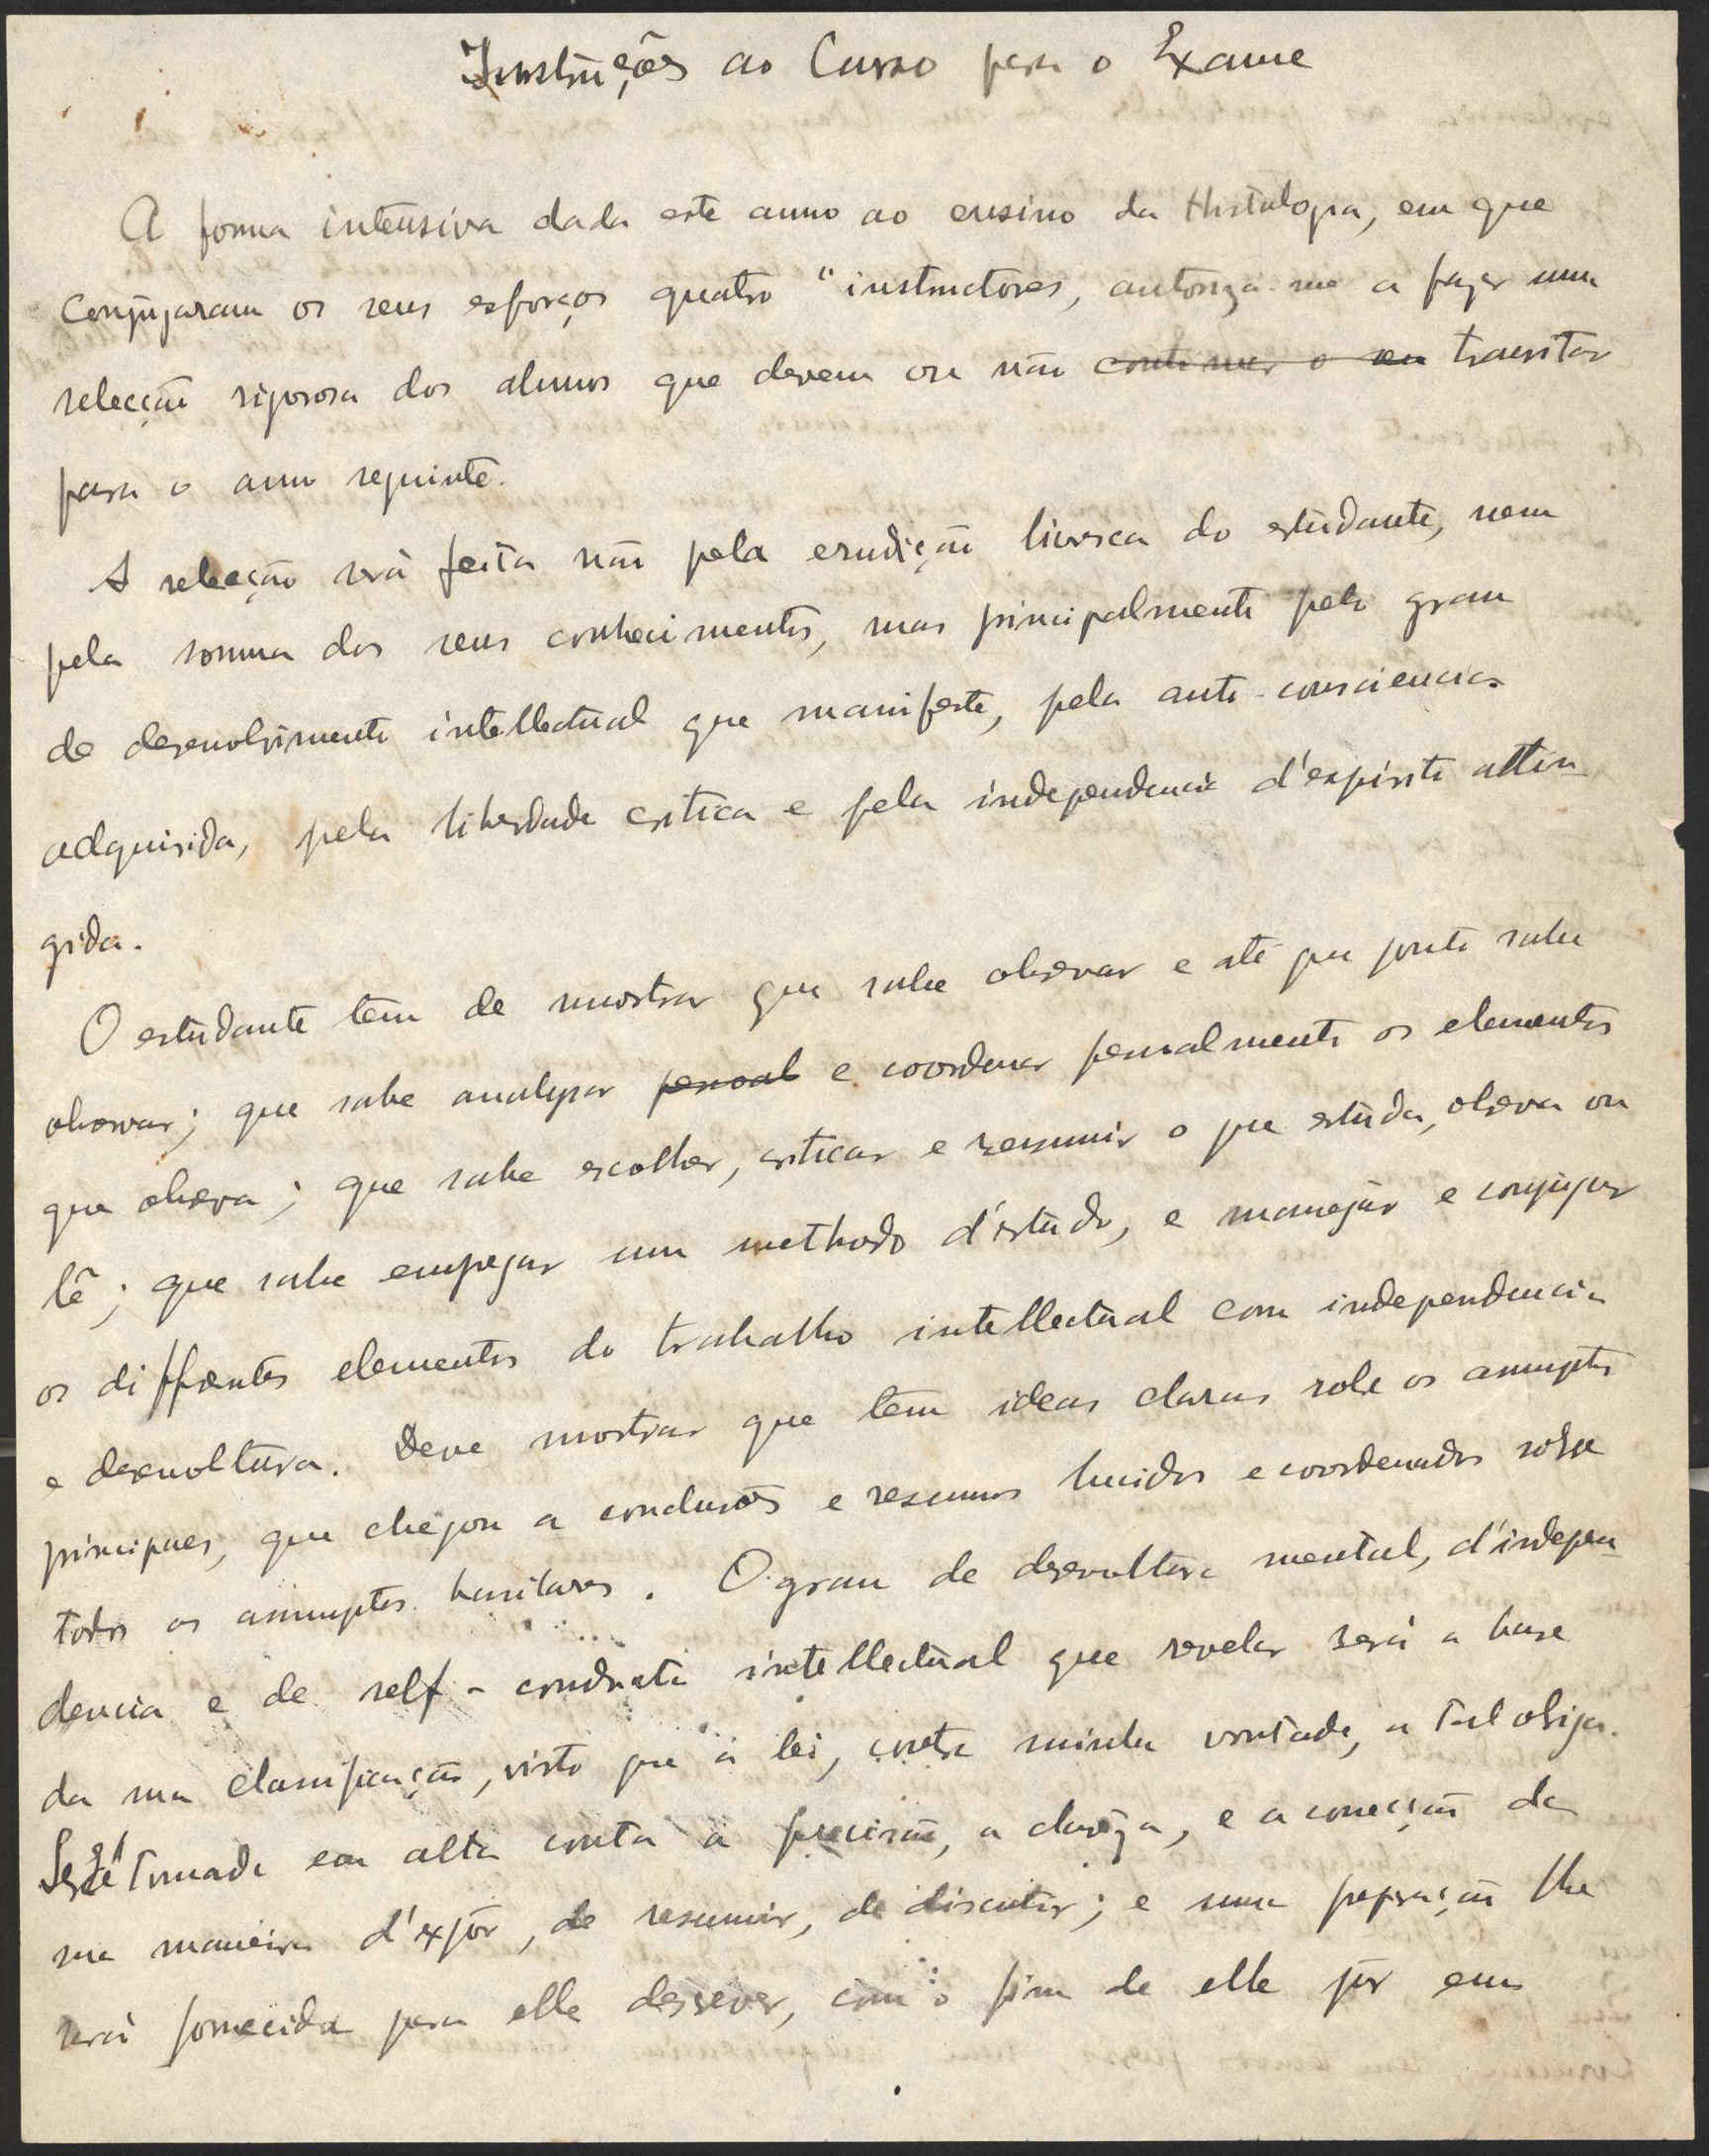 Instrucções ao Curso para o Exame
A forma intensiva dada este anno ao ensino da Histologia, em que
conjugaram os seus esforços quatro "instructores, autoriza-me a fazer uma
selecção rigorosa dos alumnos que devem ou não continuar o seu transitar
para o anno seguinte.
A selecção será feita não pela erudição livresca do estudante, nem
pela somma dos seus conhecimentos, mas principalmente pelo grau
de desenvolvimento intellectual que manifeste, pela auto-consciencia
adquirida, pela liberdade critica e pela independencia d'espirito attin
gida.
O estudante tem de mostrar que sabe observar e até que ponto sabe
observar; que sabe analysar pessoal e coordenar pessoalmente os elementos
que observa; que sabe escolher, criticar e resumir o que estuda, observa ou
lê; que sabe empregar um methodo d'estudo, e manejar e conjugar
os differentes elementos do trabalho intellectual com independencia
e desenvoltura. Deve mostrar que tem ideas claras sobre os assumptos
principaes, que chegou a conclusões e resumos lucidos e coordenados sobre
todos os assumptos basilares. O grau de desenvoltura mental, d'indepen
dencia e de self-conducta intellectual que revelar será a base
da sua classificação, visto que a lei, contra minha vontade, a tal obriga.
Será tomada em alta conta a precisão, a clareza, e a correcção da
sua maneira d'expôr, de resumir, de discutir; e uma preparação lhe
será fornecida para elle descrever, com o fim de elle pôr em